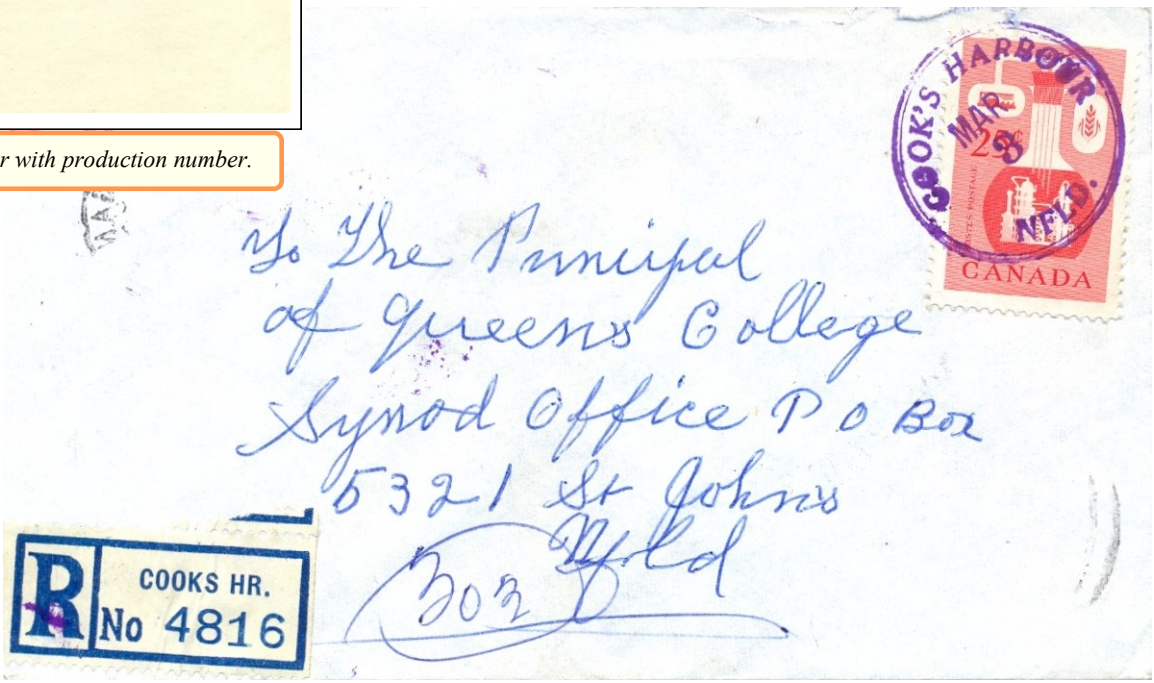 r with production number.
COOK'S HARBOUR
MAR
3
NFLD.
25¢
POSTAGE
CANADA
MAR
To The Principal
of Queens College
Synod Office P O Box
5321 St Johns
Nfld
302
R
COOKS HR.
No 4816